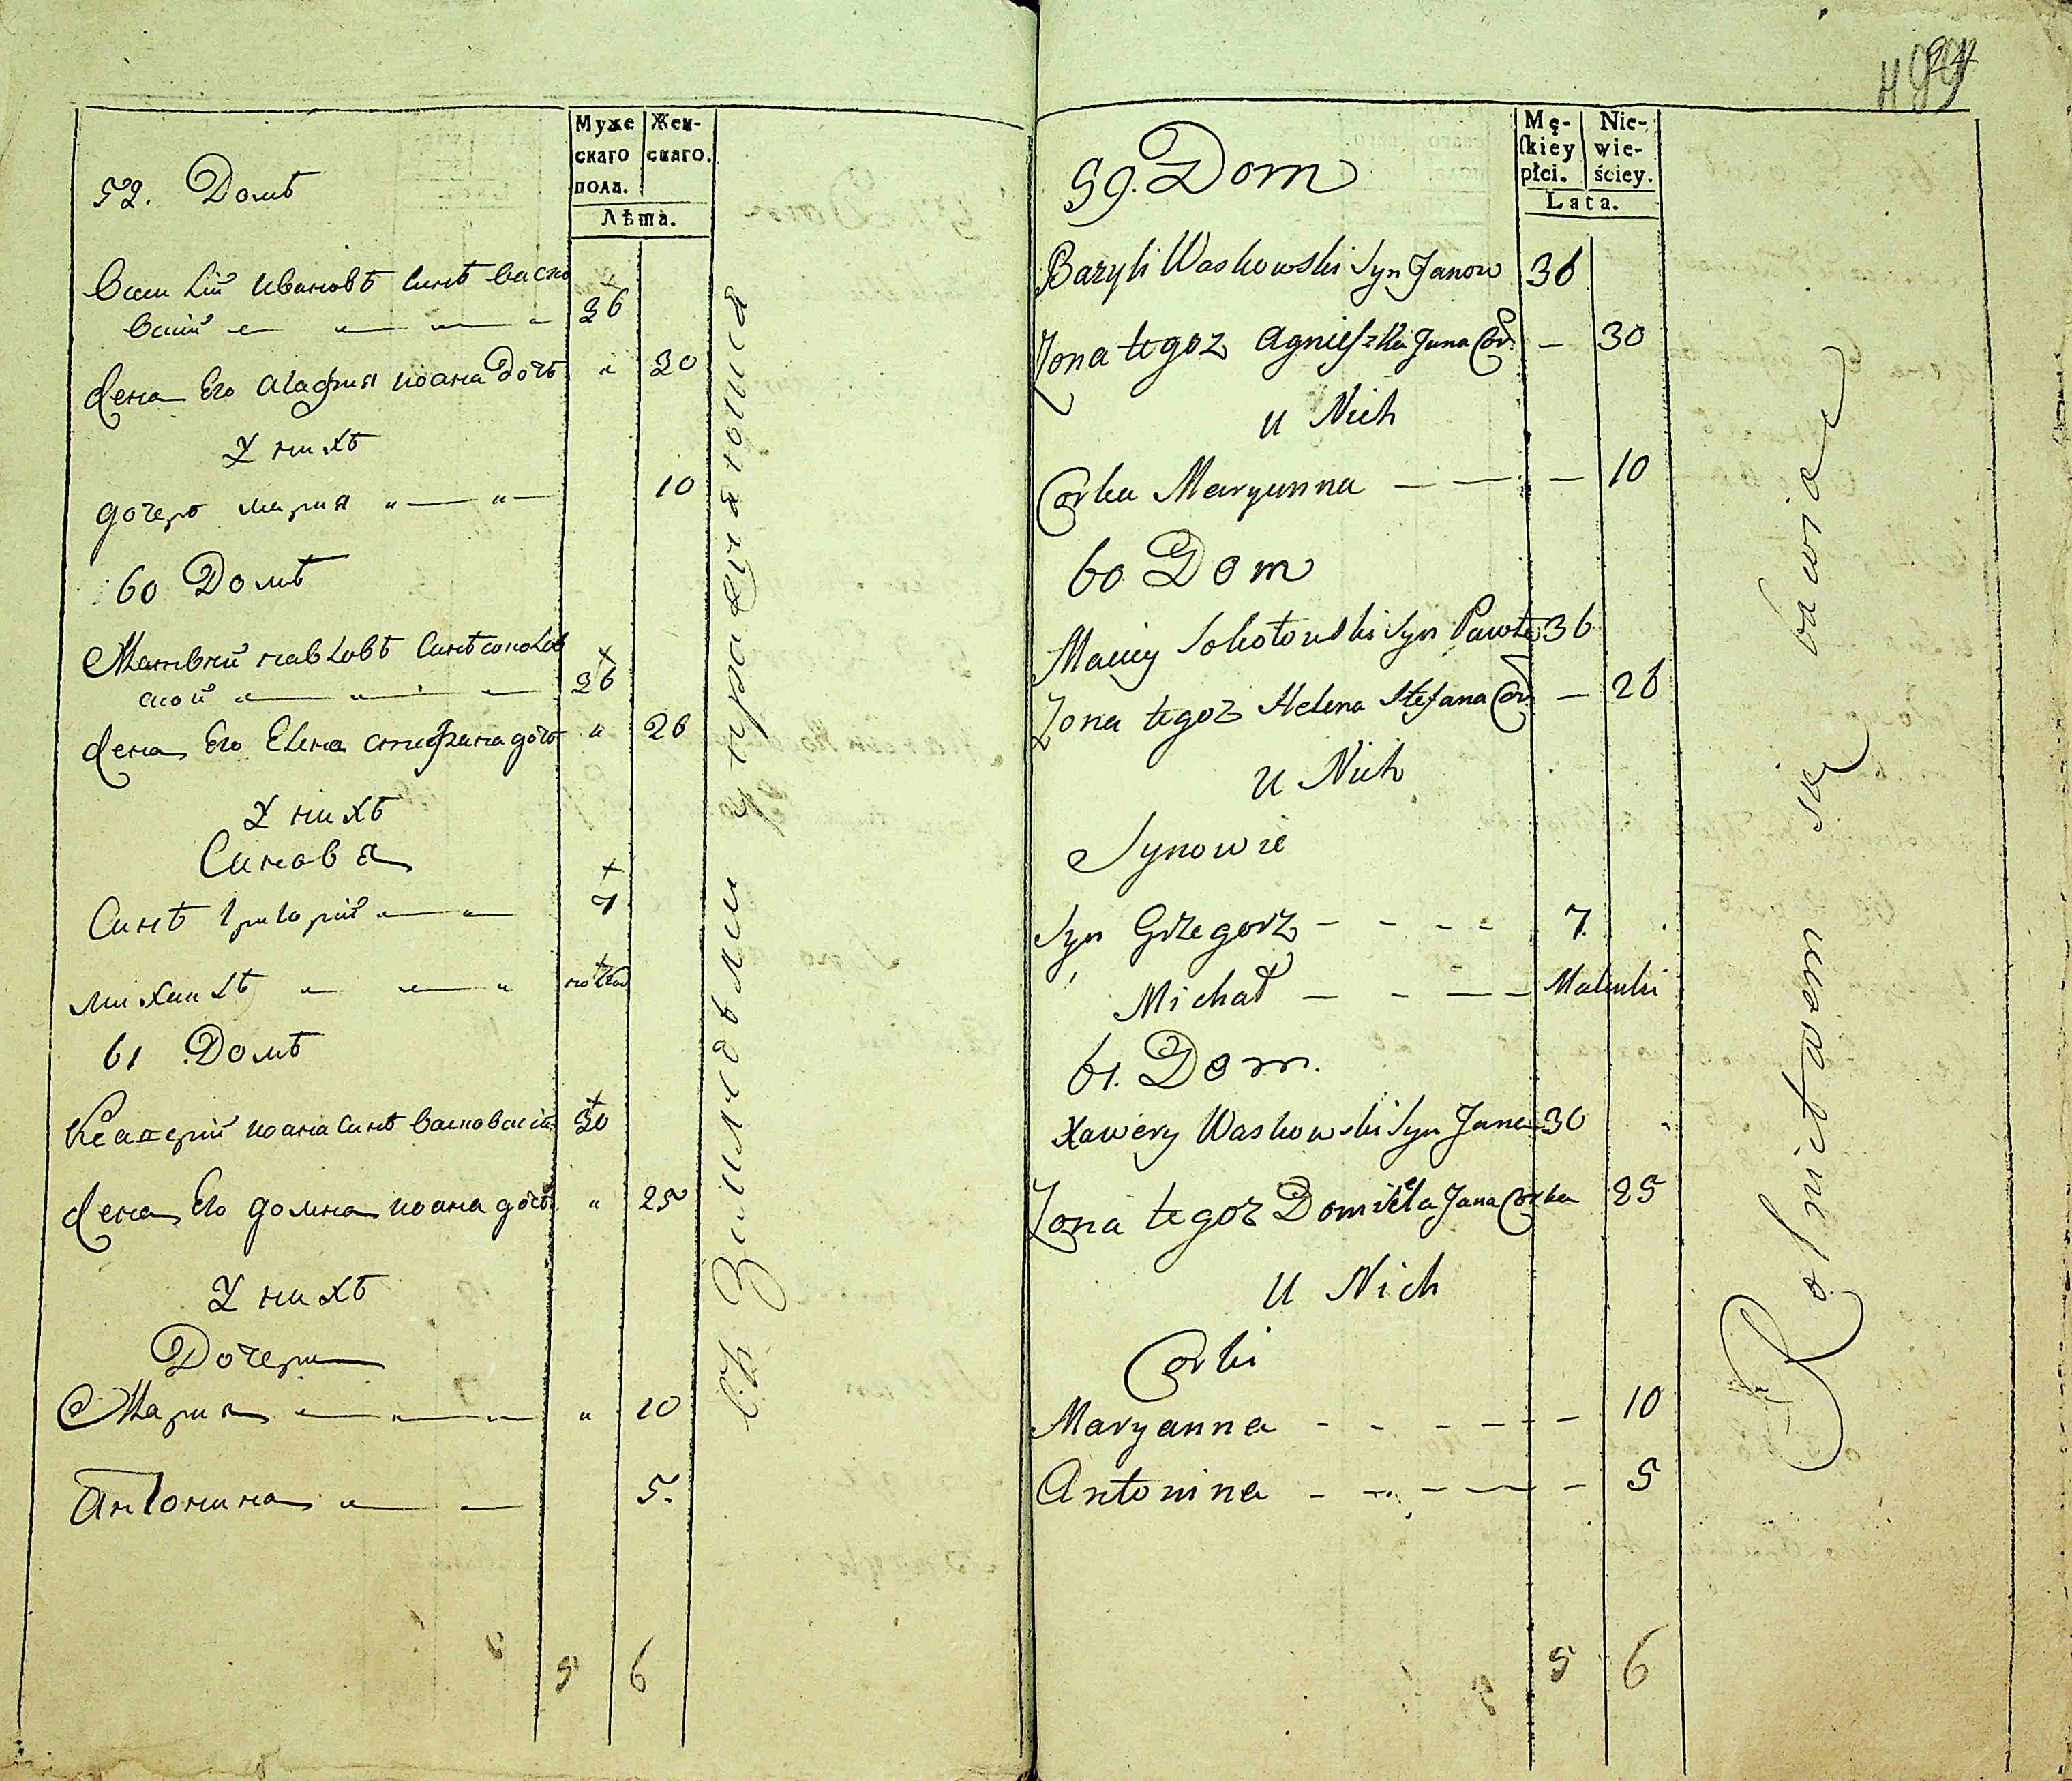 Муже
скаго
пола.
Жен-
скаго.
Лѣта.
59. Домъ
Васи лій Ивановъ Синъ Васко
вскій 36
Жена Его Агафия иоана дочъ „ 30
У нихъ
дочеръ мария 10
60 Домъ
Матвій павловъ Синъ соколов
ской 36
Жена Его Елена стефана дочъ „ 26
У нихъ
Синовя
Синъ Григорій 7
михаилъ
61 Домъ
иоана Синъ Васковскій 30
Жена Его домна иоана дочъ „ 25
У нихъ
Дочери
Мария „ 10
Антонина 5.
5 6
Зимледѣлии упражняются
94
Mę-
ſkiey
płci.
Nie-
wie-
ściey.
Lata.
59. Dom
Bazyli Waskowski Syn Janow 36
Zona tegoz Agnieſzka Jana Cor. — 30
u Nich
Corka Maryanna — — — 10
60 Dom
Maciey Sokołowski Syn Pawła 36
Zona tegoz Helena Stefana Cor. — 26
u Nich
Synowie
Syn Grzegorz - - - - 7.
Michał — - — — Malenki
61. Dom.
Xawery Waskowski Syn Jana 30
Zona tegoz Domicela Jana Corka 25
u Nich
Corki
Maryanna - - - - - - 10
Antonina - - - - - 5
5 6
Rolnictwem się bawią